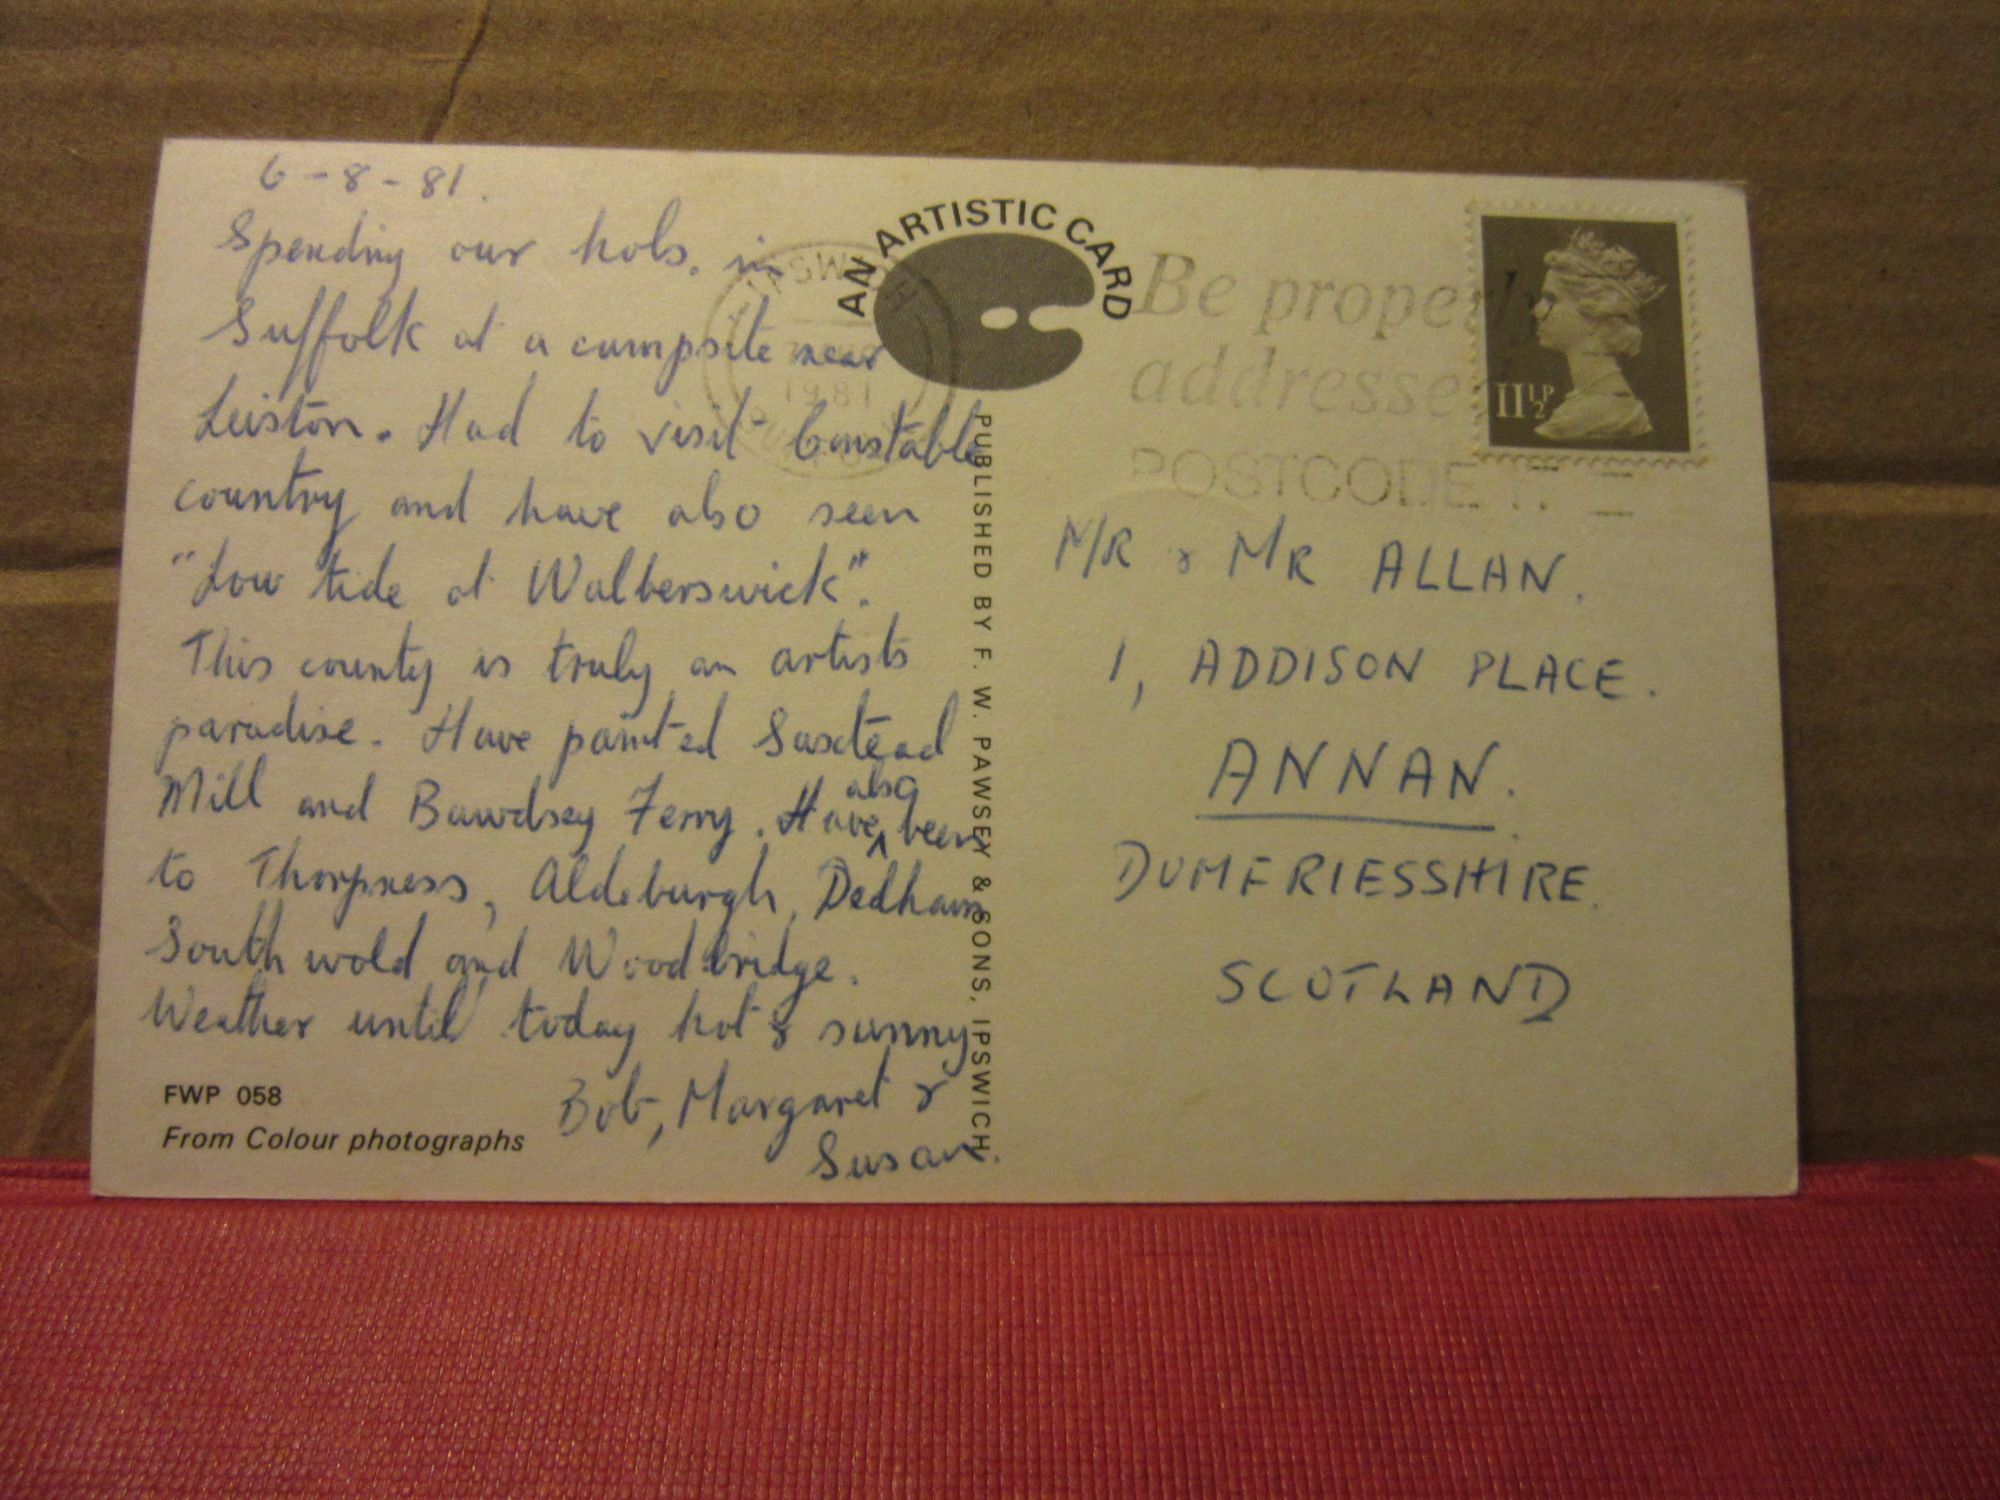 6-8-81.
Spending our hols. in
Suffolk at a campsite near
Leiston. Had to visit Constable
country and have also seen
"Low tide at Walberswick".
This county is truly an artists
paradise. Have painted Saxtead
Mill and Bawdsey Ferry. Have also been
to Thorpness, Aldeburgh, Dedham
Southwold and Woodbridge.
Weather until today hot & sunny
Bob, Margaret &
Susan.
FWP 058
From Colour photographs
AN ARTISTIC CARD
PUBLISHED BY F. W. PAWSEY & SONS, IPSWICH.
IPSWICH
1981
Be properly
addressed
POSTCODE IT
11½P
MR & MR ALLAN.
1, ADDISON PLACE.
ANNAN.
DUMFRIESSHIRE.
SCOTLAND